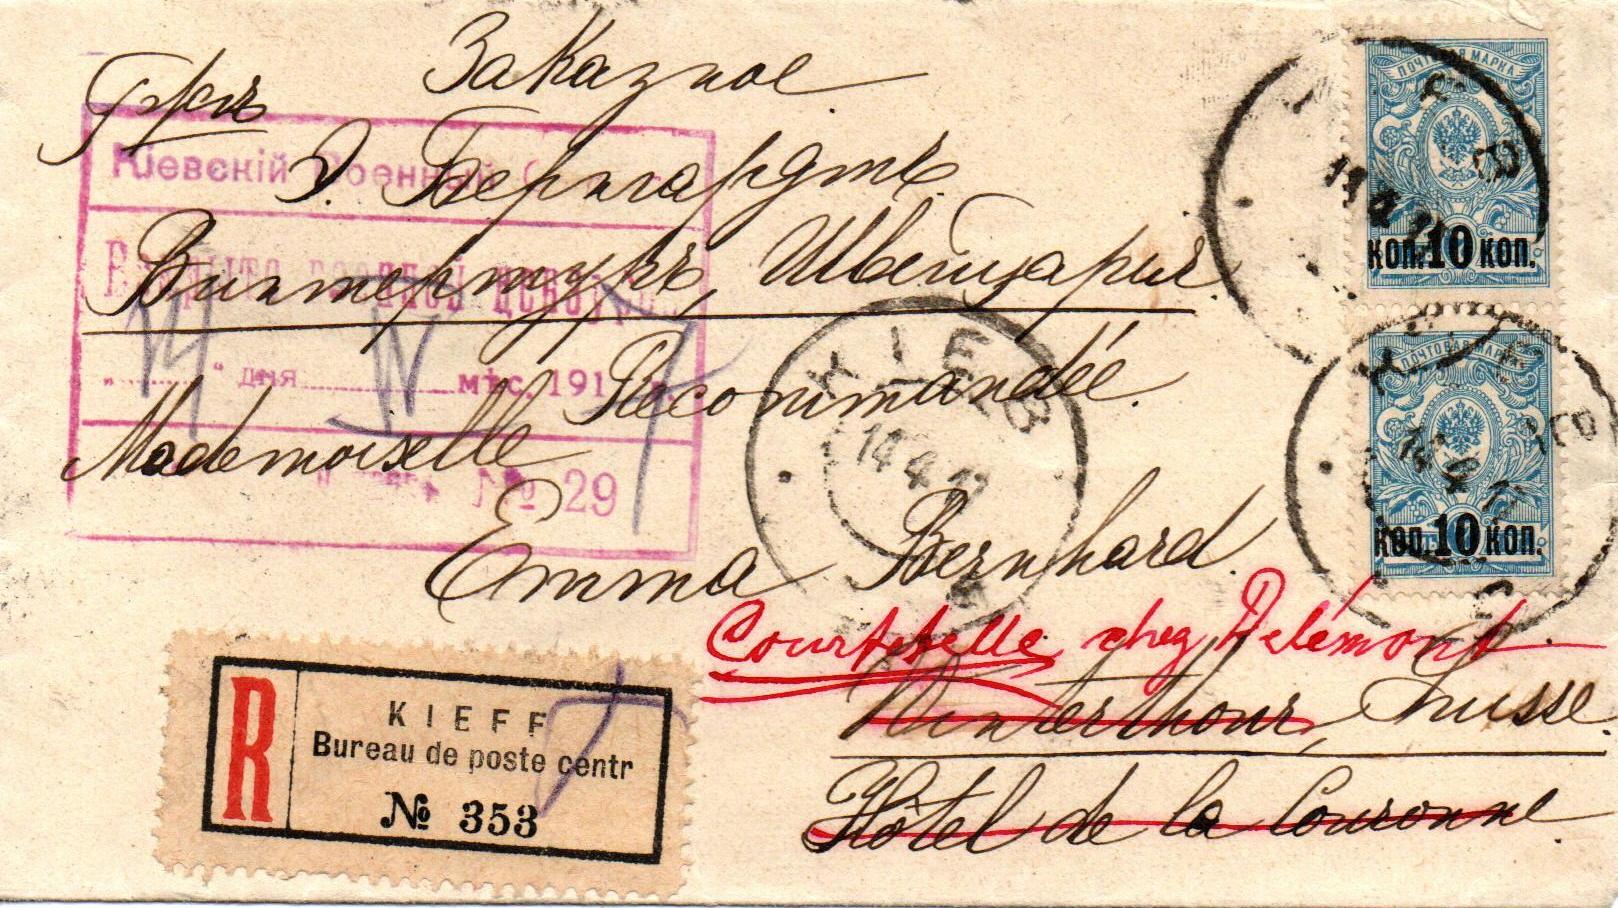 Заказное.
Э. Бернгардтъ.
Винтертуръ, Швейцарія.
Recommandée.
Mademoiselle
Emma Bernhard.
Courtetelle chez Delémont
Winterthour, Suisse.
Hôtel de la Couronne.
Кіевскій Военный
" " дня мѣс. 191 г.
№ 29
КІЕВЪ
14 4 17
R
KIEFF
Bureau de poste centr
№ 353
ПОЧТОВАЯ МАРКА
коп. 10 коп.
КІЕВЪ
14 4 17
ПОЧТОВАЯ МАРКА
коп. 10 коп.